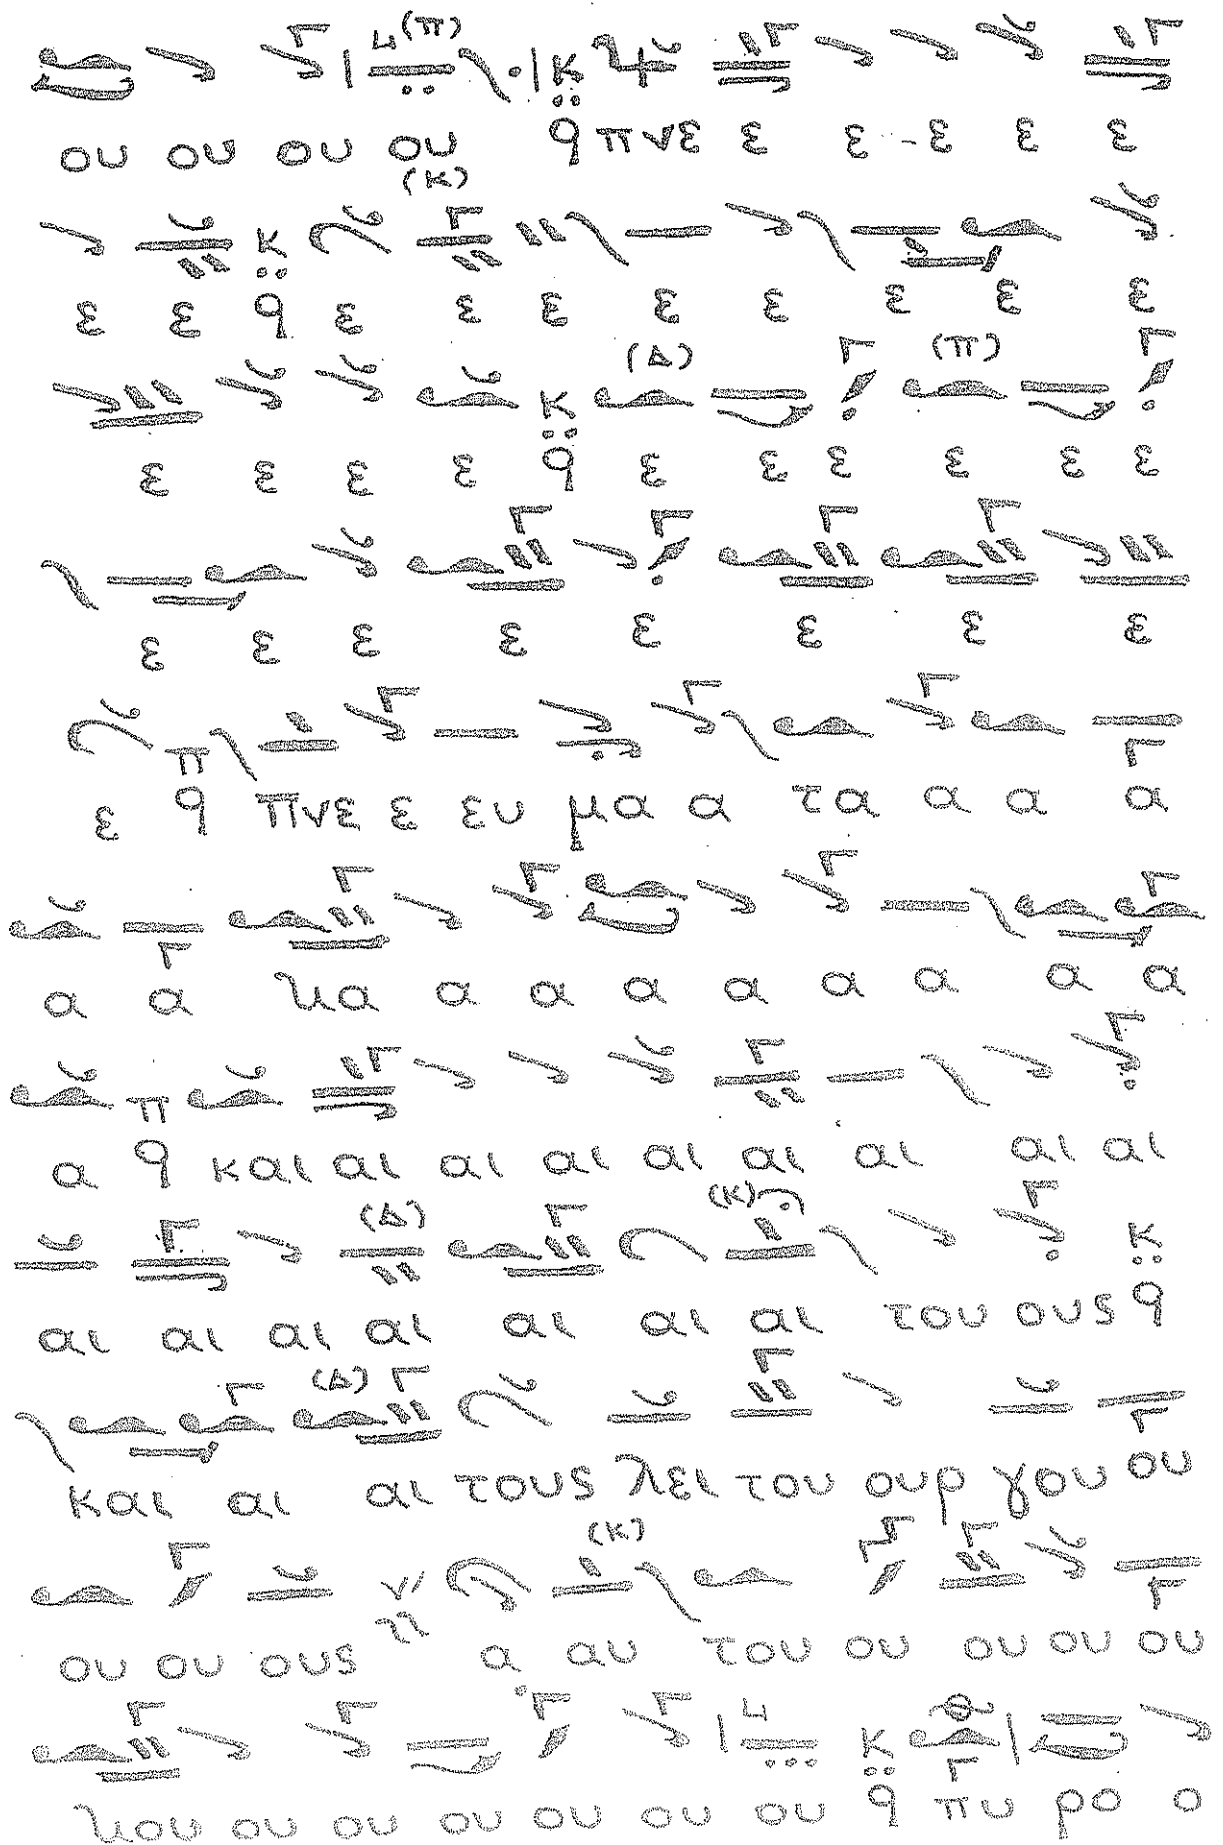 ου ου ου ου q πνε ε ε - ε ε ε
ε ε q ε ε ε ε ε ε ε ε
ε ε ε ε q ε ε ε ε ε ε
ε ε ε ε ε ε ε ε
ε q πνε ε ευ μα α τα α α α
α α χα α α α α α α α α
α q και αι αι αι αι αι αι αι αι
αι αι αι αι αι αι αι του ους q
και αι αι τους λει του ουρ γου ου
ου ου ους α αυ του ου ου ου ου
χου ου ου ου ου ου ου q πυ ρο ο